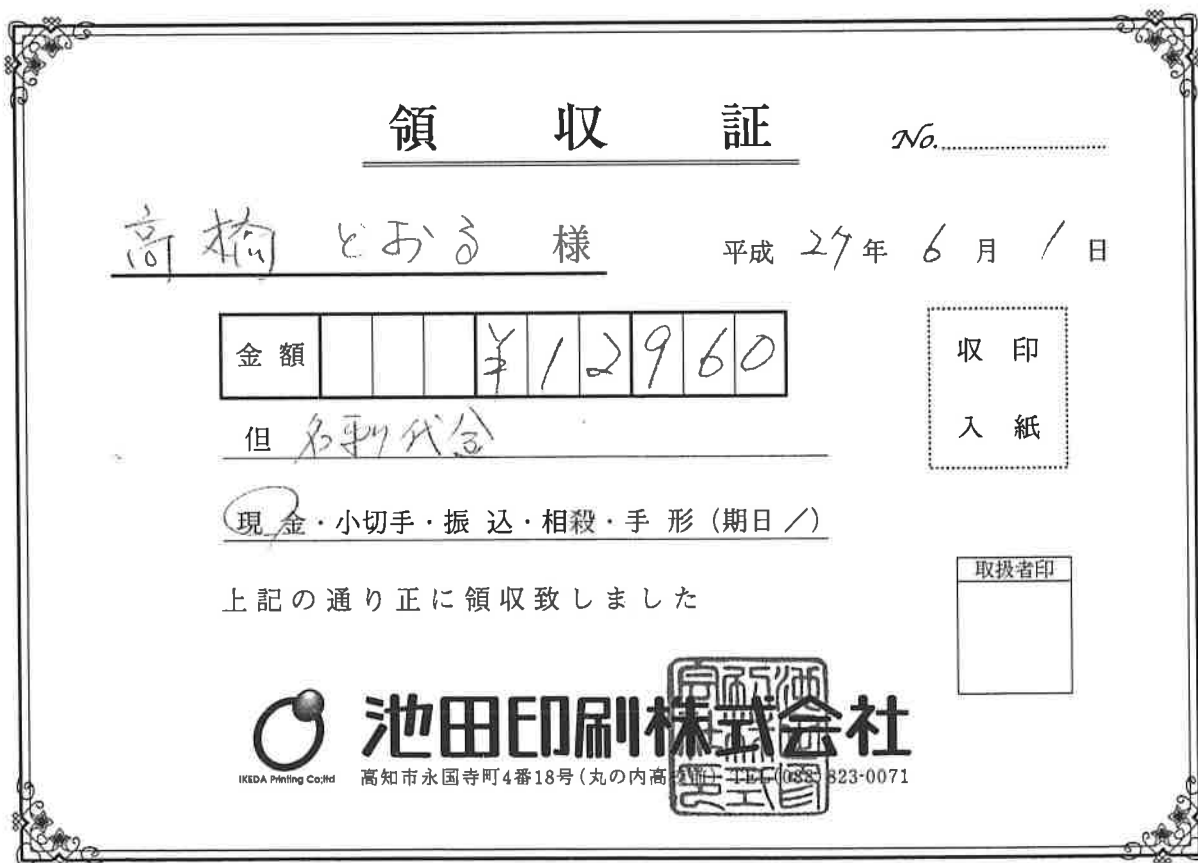 領収証 No.
高橋 とおる 様 平成 27年 6月 1日
金額 ¥12960
収印
入紙
但 名刺代金
現金・小切手・振込・相殺・手形(期日 /)
取扱者印
上記の通り正に領収致しました
池田印刷株式会社
IKEDA Printing Co;ltd
高知市永国寺町4番18号(丸の内高 前) TEL(088)823-0071